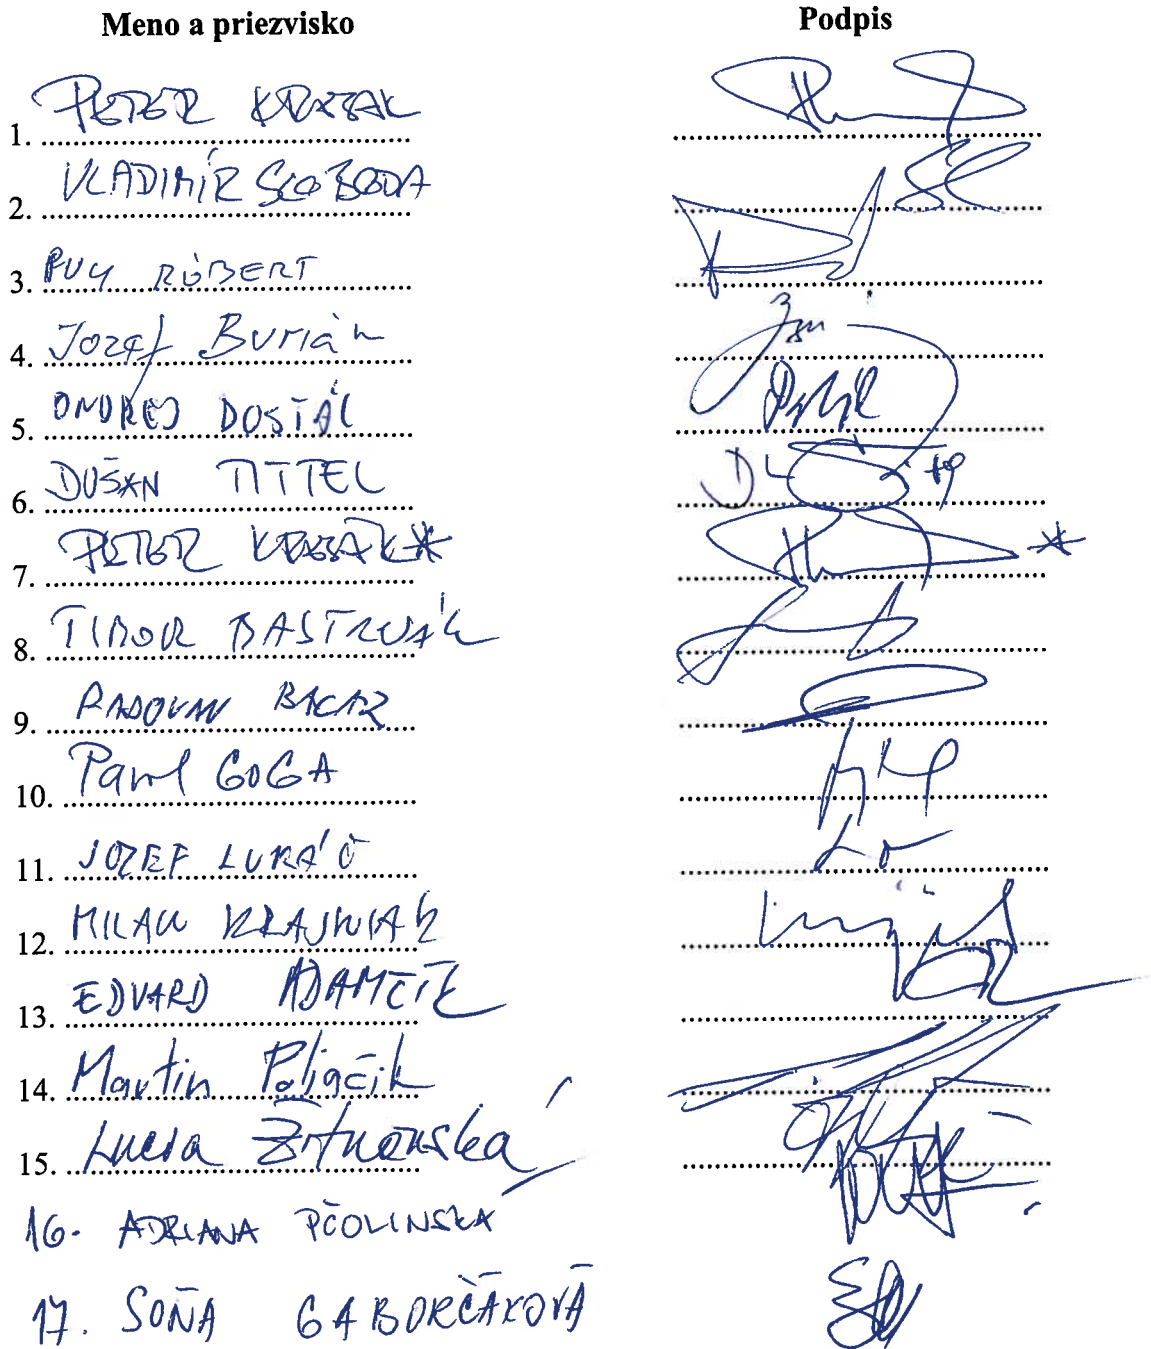 Meno a priezvisko Podpis
1. PETER KRESÁK
2. VLADIMÍR SLOBODA
3. PUCI RÓBERT
4. Jozef Burián
5. ONDREJ DOSTÁL
6. DUŠAN TITTEL
7. PETER KRESÁK*
8. TIBOR BASTRNÁK
9. RADOVAN BALÁŽ
10. Pavol GOGA
11. JOZEF LUKÁČ
12. MILAN KRAJNIAK
13. EDVARD ADAMČÍK
14. Martin Poliačik
15. Lucia Žitňanská
16. ADRIANA PČOLINSKÁ
17. SOŇA GABORČÁKOVÁ